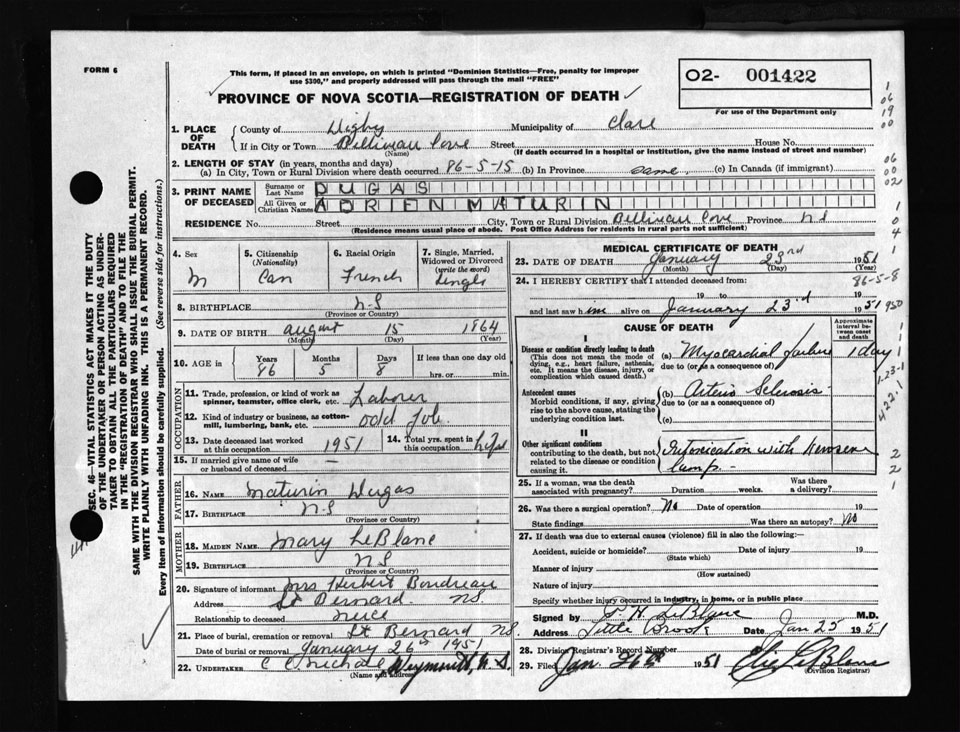 FORM 6
This form, if placed in an envelope, on which is printed "Dominion Statistics—Free, penalty for improper
use $300," and properly addressed will pass through the mail "FREE"
PROVINCE OF NOVA SCOTIA—REGISTRATION OF DEATH
O2- 001422
For use of the Department only
1. PLACE OF DEATH
County of Digby Municipality of Clare
If in City or Town Belliveau Cove Street House No.
(Name) (If death occurred in a hospital or institution, give the name instead of street and number)
2. LENGTH OF STAY (in years, months and days)
(a) In City, Town or Rural Division where death occurred 86-5-15 (b) In Province same (c) In Canada (if immigrant)
3. PRINT NAME OF DECEASED
Surname or Last Name DUGAS
All Given or Christian Names ADRIEN MATURIN
RESIDENCE No. Street City, Town or Rural Division Belliveau Cove Province N S
(Residence means usual place of abode. Post Office Address for residents in rural parts not sufficient)
4. Sex
M
5. Citizenship
(Nationality)
Can
6. Racial Origin
French
7. Single, Married, Widowed or Divorced
(write the word)
Single
8. BIRTHPLACE N-S
(Province or Country)
9. DATE OF BIRTH August 15 1864
(Month) (Day) (Year)
10. AGE in
Years Months Days If less than one day old
86 5 8 hrs. or min.
OCCUPATION
11. Trade, profession, or kind of work as
spinner, teamster, office clerk, etc. Laborer
12. Kind of industry or business, as cotton-
mill, lumbering, bank, etc. odd Job
13. Date deceased last worked
at this occupation 1951
14. Total yrs. spent in
this occupation Life
15. If married give name of wife
or husband of deceased —
FATHER
16. NAME Maturin Dugas
17. BIRTHPLACE N-S
(Province or Country)
MOTHER
18. MAIDEN NAME Mary LeBlanc
19. BIRTHPLACE N S
(Province or Country)
20. Signature of informant Mrs Herbert Boudreau
Address St Bernard NS
Relationship to deceased neice
21. Place of burial, cremation or removal St Bernard NS
Date of burial or removal January 26th 1951
22. UNDERTAKER Weymouth, N. S.
(Name and address)
MEDICAL CERTIFICATE OF DEATH
23. DATE OF DEATH January 23rd 1951
(Month) (Day) (Year)
24. I HEREBY CERTIFY that I attended deceased from: 86-5-8
19 to 19
and last saw him alive on January 23rd 1951
CAUSE OF DEATH
Approximate interval between onset and death
I
Disease or condition directly leading to death
(This does not mean the mode of
dying, e.g., heart failure, asthenia,
etc. It means the disease, injury, or
complication which caused death.)
(a) Myocardial failure 1 day
due to (or as a consequence of)
Antecedent causes
Morbid conditions, if any, giving
rise to the above cause, stating the
underlying condition last.
(b) Arterio Sclerosis
due to (or as a consequence of)
(c)
II
Other significant conditions
contributing to the death, but not
related to the disease or condition
causing it.
Intoxication with
lamp -
25. If a woman, was the death
associated with pregnancy? Duration weeks. Was there a delivery?
26. Was there a surgical operation? No Date of operation 19
State findings Was there an autopsy? No
27. If death was due to external causes (violence) fill in also the following:—
Accident, suicide or homicide? Date of injury 19
(State which)
Manner of injury
(How sustained)
Nature of injury
Specify whether injury occurred in industry, in home, or in public place
Signed by LeBlanc M.D.
Address Little Brook Date Jan 25 1951
28. Division Registrar's Record Number
29. Filed Jan. 26th 1951 LeBlanc
(Division Registrar)
SEC. 46—VITAL STATISTICS ACT MAKES IT THE DUTY
OF THE UNDERTAKER OR PERSON ACTING AS UNDER-
TAKER TO OBTAIN ALL THE PARTICULARS REQUIRED
IN THE "REGISTRATION OF DEATH" AND TO FILE THE
SAME WITH THE DIVISION REGISTRAR WHO SHALL ISSUE THE BURIAL PERMIT.
WRITE PLAINLY WITH UNFADING INK. THIS IS A PERMANENT RECORD.
Every item of information should be carefully supplied. (See reverse side for instructions.)